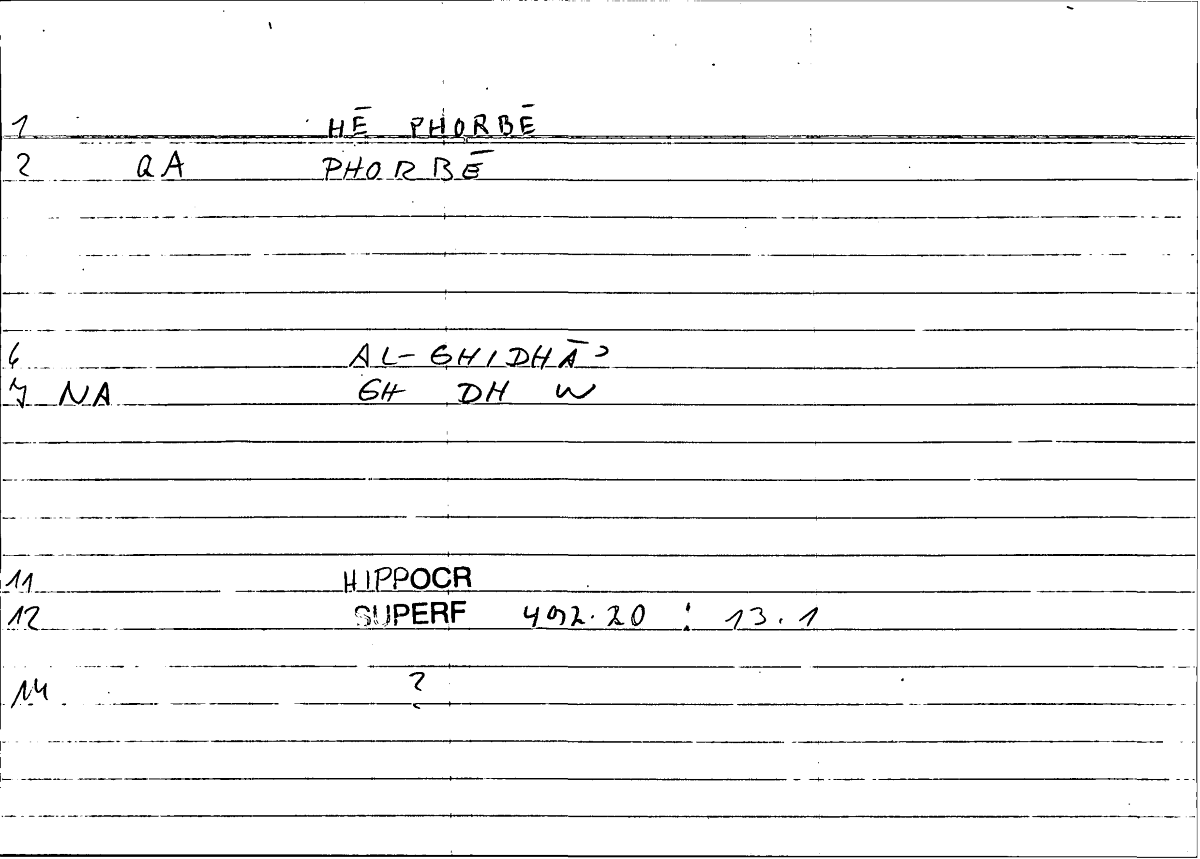 1 HĒ PHORBĒ
2 QA PHORBĒ
6 AL-GHIDHĀʾ
7 NA GH DH W
11 HIPPOCR
12 SUPERF 492.20 : 13.1
14 ?